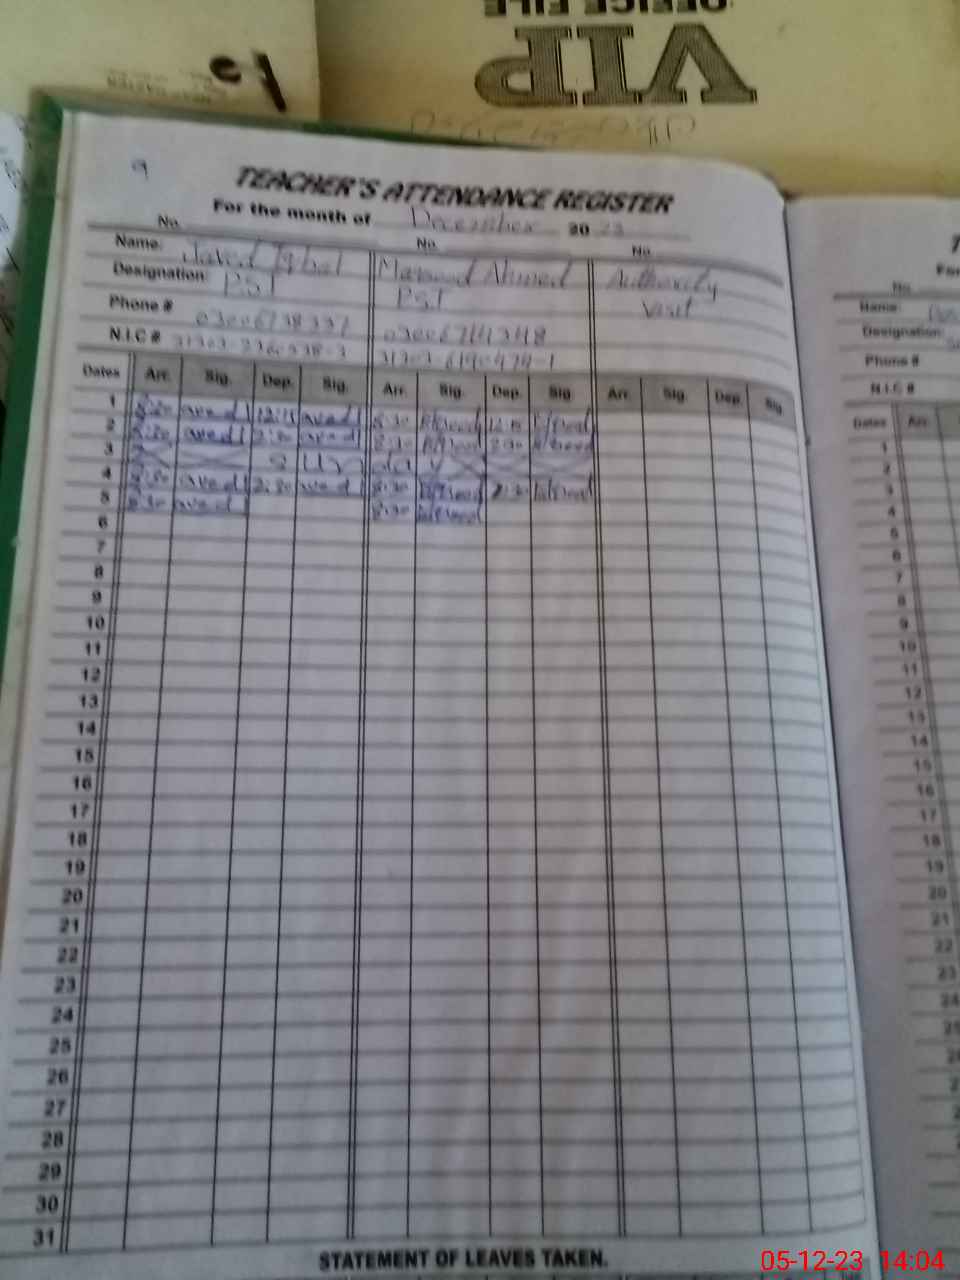 OFFICE FILE
VIP
9
TEACHER'S ATTENDANCE REGISTER
For the month of December 20 23
No. No. No.
Name: Javed Iqbal Masood Ahmed Authority
Designation: PST PST Visit
Phone # 03006714348
N.I.C #
Dates Arr. Sig. Dep. Sig. Arr. Sig. Dep. Sig. Arr. Sig. Dep. Sig.
1 8:30 aved 12:15 aved 8:30 12:15
2 8:30 aved 2:30 aved 8:30 2:30
3 Sunday
4 8:30 aved 2:30 aved 8:30 2:30
5 8:30 aved 8:30
6
7
8
9
10
11
12
13
14
15
16
17
18
19
20
21
22
23
24
25
26
27
28
29
30
31
STATEMENT OF LEAVES TAKEN.
No.
Name:
Designation:
Phone #
N.I.C #
Dates Arr.
1
2
3
4
5
6
7
8
9
10
11
12
13
14
15
16
17
18
19
20
21
22
23
24
25
05-12-23 14:04